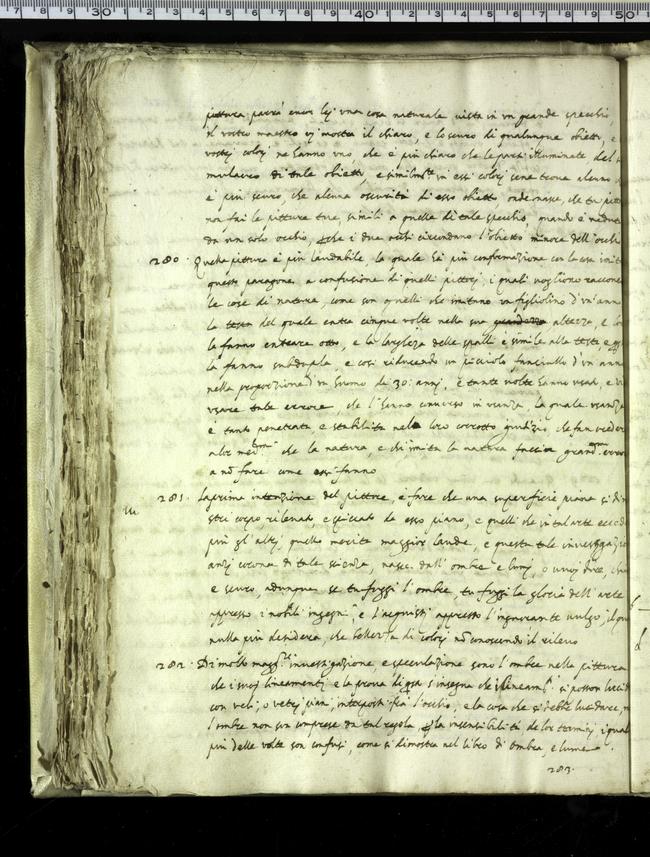 7 8 9 30 1 2 3 4 5 6 7 8 9 40 1 2 3 4 5 6 7 8 9 50
pittura parrà ancor lej una cosa naturale vista in un grande specchio
il vostro maestro vj mostra il chiaro, e lo scuro di qualunque obietto, e
vostrj colorj ne hanno uno, che è più chiaro che le parti illuminate del
simulacro di tale obietto, e similmte in essi colorj
è più scuro, che alcuna oscurità di esso obietto onde nasce, che tu
non fai le pitture tue, simili a quelle di tale specchio, quando è
da un solo occhio, che i due occhi circundano l'obietto minore dell'occhio
280. Quella pittura è più laudabile la quale hà più conformazione con la cosa
questo paragone a confusione di quelli pittorj i quali vogliono
le cose di natura, come son quelli che imitano un figliolino d'un anno
la testa del quale entra cinque volte nella sua altezza, e
la fanno entrare otto, e la larghezza delle spalle è simile alla testa e
la fanno subdupla, e così riducendo un picciolo fanciullo d'un anno
nella proporzione d'un huomo de 30. annj, e tante volte hanno usato, e
usare tale errore, che l'hanno converso in usanza, la quale usanza
è tanto penetrata e stabilita nel loro corrotto giudizio che fan
che la natura, o chi imita la natura faccia
a nō fare come essi fanno
281. La prima intenzione del pittore, è fare che una superficie piana si
stri corpo rilevato, e spiccato da esso piano, e quelli che in tal arte
più gl'altrj, quello merita maggior laude, e questa tale
anzj corona di tale scienza, nasce dall'ombre e lumj, o
e scuro, adunque se tu fuggi l'ombre, tu fuggi la gloria dell'arte
appresso i nobili ingegni, e l'acquisti appresso l'ignorante vulgo, il
nulla più desidera, che bellezza di colorj nō conoscendo il rilevo
282. Di molto investigazione, e speculazione sono l'ombre nella pittura
che i suoj lineamentj e la prova di qsta s'insegna che i si posson
con veli, o vetrj pianj interposti frà l'occhio, e la cosa che si debbe lucidare,
l'ombre non son comprese da tal regola, la insensibilità de lor terminj i
più delle volte son confusj, come si dimostra nel libro di ombra, e lume
283.